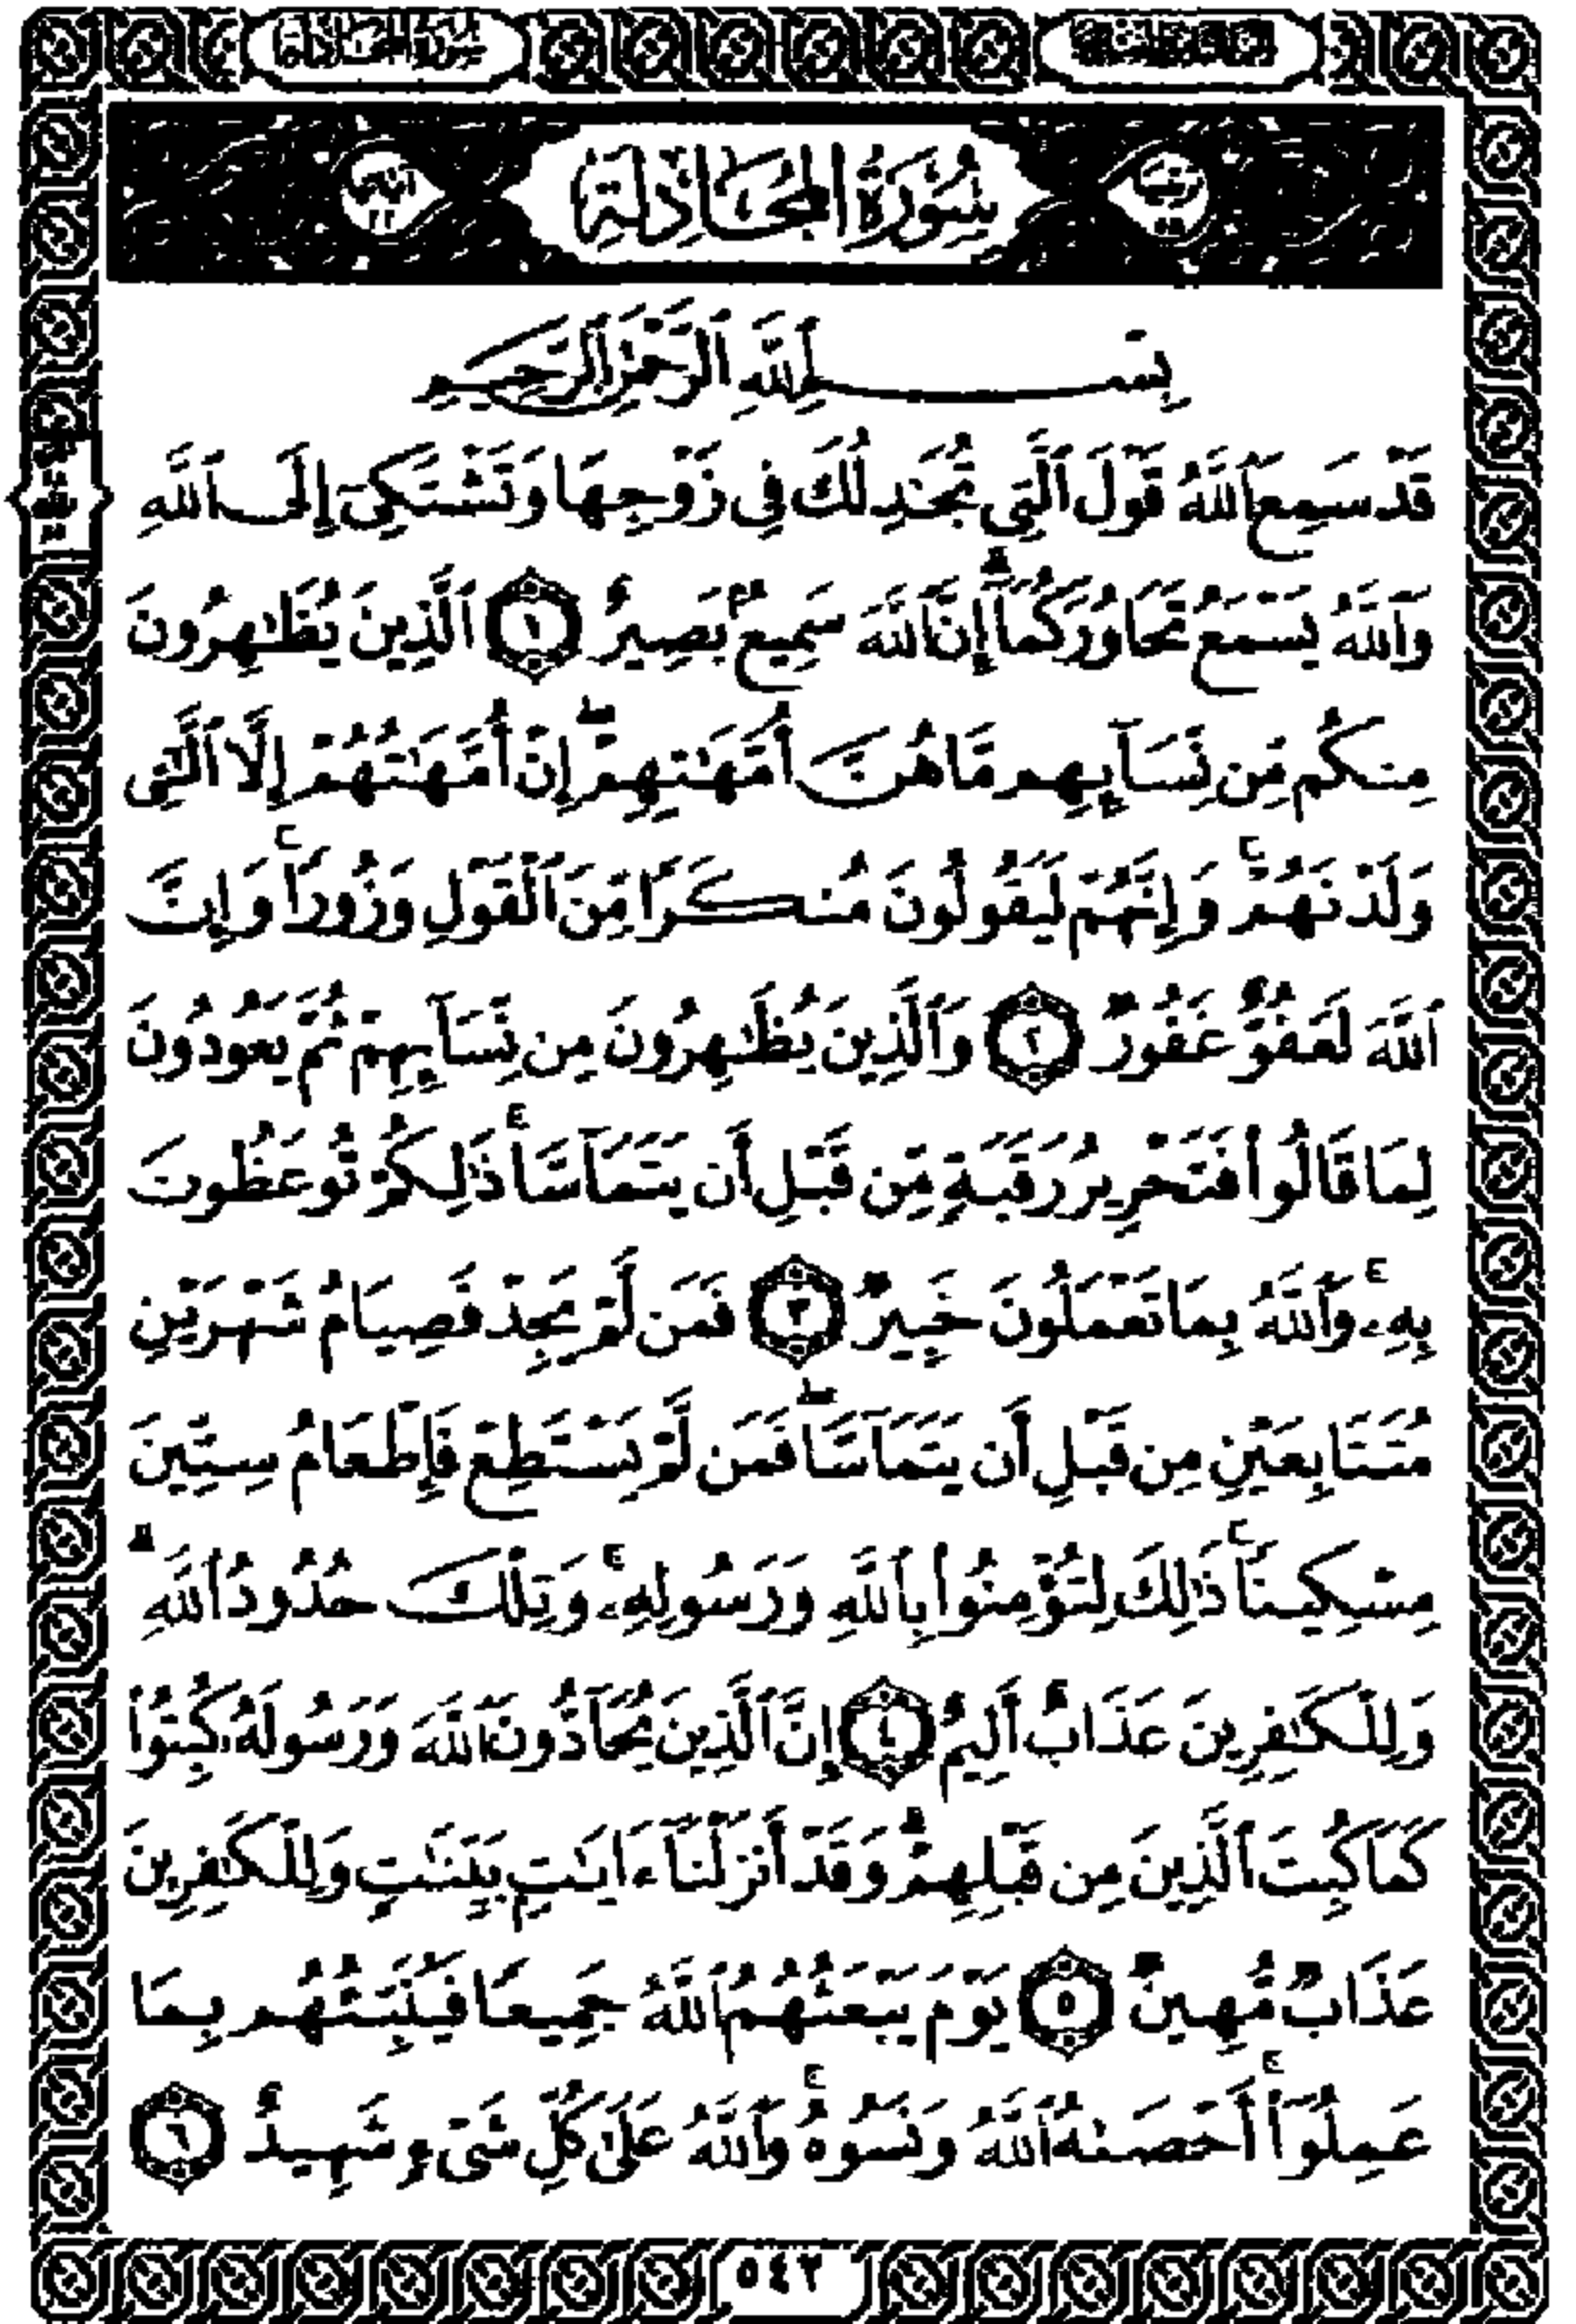 سُورَةُ المُجَادِلَةِ
بِسْمِ ٱللَّهِ ٱلرَّحْمَٰنِ ٱلرَّحِيمِ
قَدْ سَمِعَ ٱللَّهُ قَوْلَ ٱلَّتِى تُجَٰدِلُكَ فِى زَوْجِهَا وَتَشْتَكِىٓ إِلَى ٱللَّهِ
وَٱللَّهُ يَسْمَعُ تَحَاوُرَكُمَآ ۚ إِنَّ ٱللَّهَ سَمِيعٌۢ بَصِيرٌ ١ ٱلَّذِينَ يُظَٰهِرُونَ
مِنكُم مِّن نِّسَآئِهِم مَّا هُنَّ أُمَّهَٰتِهِمْ ۖ إِنْ أُمَّهَٰتُهُمْ إِلَّا ٱلَّٰٓـِٔى
وَلَدْنَهُمْ ۚ وَإِنَّهُمْ لَيَقُولُونَ مُنكَرًا مِّنَ ٱلْقَوْلِ وَزُورًا ۚ وَإِنَّ
ٱللَّهَ لَعَفُوٌّ غَفُورٌ ٢ وَٱلَّذِينَ يُظَٰهِرُونَ مِن نِّسَآئِهِمْ ثُمَّ يَعُودُونَ
لِمَا قَالُوا۟ فَتَحْرِيرُ رَقَبَةٍ مِّن قَبْلِ أَن يَتَمَآسَّا ۚ ذَٰلِكُمْ تُوعَظُونَ
بِهِۦ ۚ وَٱللَّهُ بِمَا تَعْمَلُونَ خَبِيرٌ ٣ فَمَن لَّمْ يَجِدْ فَصِيَامُ شَهْرَيْنِ
مُتَتَابِعَيْنِ مِن قَبْلِ أَن يَتَمَآسَّا ۖ فَمَن لَّمْ يَسْتَطِعْ فَإِطْعَامُ سِتِّينَ
مِسْكِينًا ۚ ذَٰلِكَ لِتُؤْمِنُوا۟ بِٱللَّهِ وَرَسُولِهِۦ ۚ وَتِلْكَ حُدُودُ ٱللَّهِ ۗ
وَلِلْكَٰفِرِينَ عَذَابٌ أَلِيمٌ ٤ إِنَّ ٱلَّذِينَ يُحَآدُّونَ ٱللَّهَ وَرَسُولَهُۥ كُبِتُوا۟
كَمَا كُبِتَ ٱلَّذِينَ مِن قَبْلِهِمْ ۚ وَقَدْ أَنزَلْنَآ ءَايَٰتٍۭ بَيِّنَٰتٍ ۚ وَلِلْكَٰفِرِينَ
عَذَابٌ مُّهِينٌ ٥ يَوْمَ يَبْعَثُهُمُ ٱللَّهُ جَمِيعًا فَيُنَبِّئُهُم بِمَا
عَمِلُوٓا۟ ۚ أَحْصَىٰهُ ٱللَّهُ وَنَسُوهُ ۚ وَٱللَّهُ عَلَىٰ كُلِّ شَىْءٍ شَهِيدٌ ٦
٥٤٢